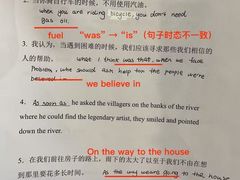 2. 当你骑自行车的时候，不用使用汽油。
when you are riding bicycle, you don't need
gas oil.
fuel "was" → "is" (句子时态不一致)
3. 我认为，当遇到困难的时候，我们应该寻求那些我们相信的
人的帮助。 what I think was that, when we face
problem, who should can help ton the people we're
believed in
we believe in
4. As soon as he asked the villagers on the banks of the river
where he could find the legendary artist, they smiled and pointed
down the river.
On the way to the house
5. 在我们前往房子的路上，雨下的太大了以至于我们不由在想
到那里要花多长时间。 As the way we're going to the house